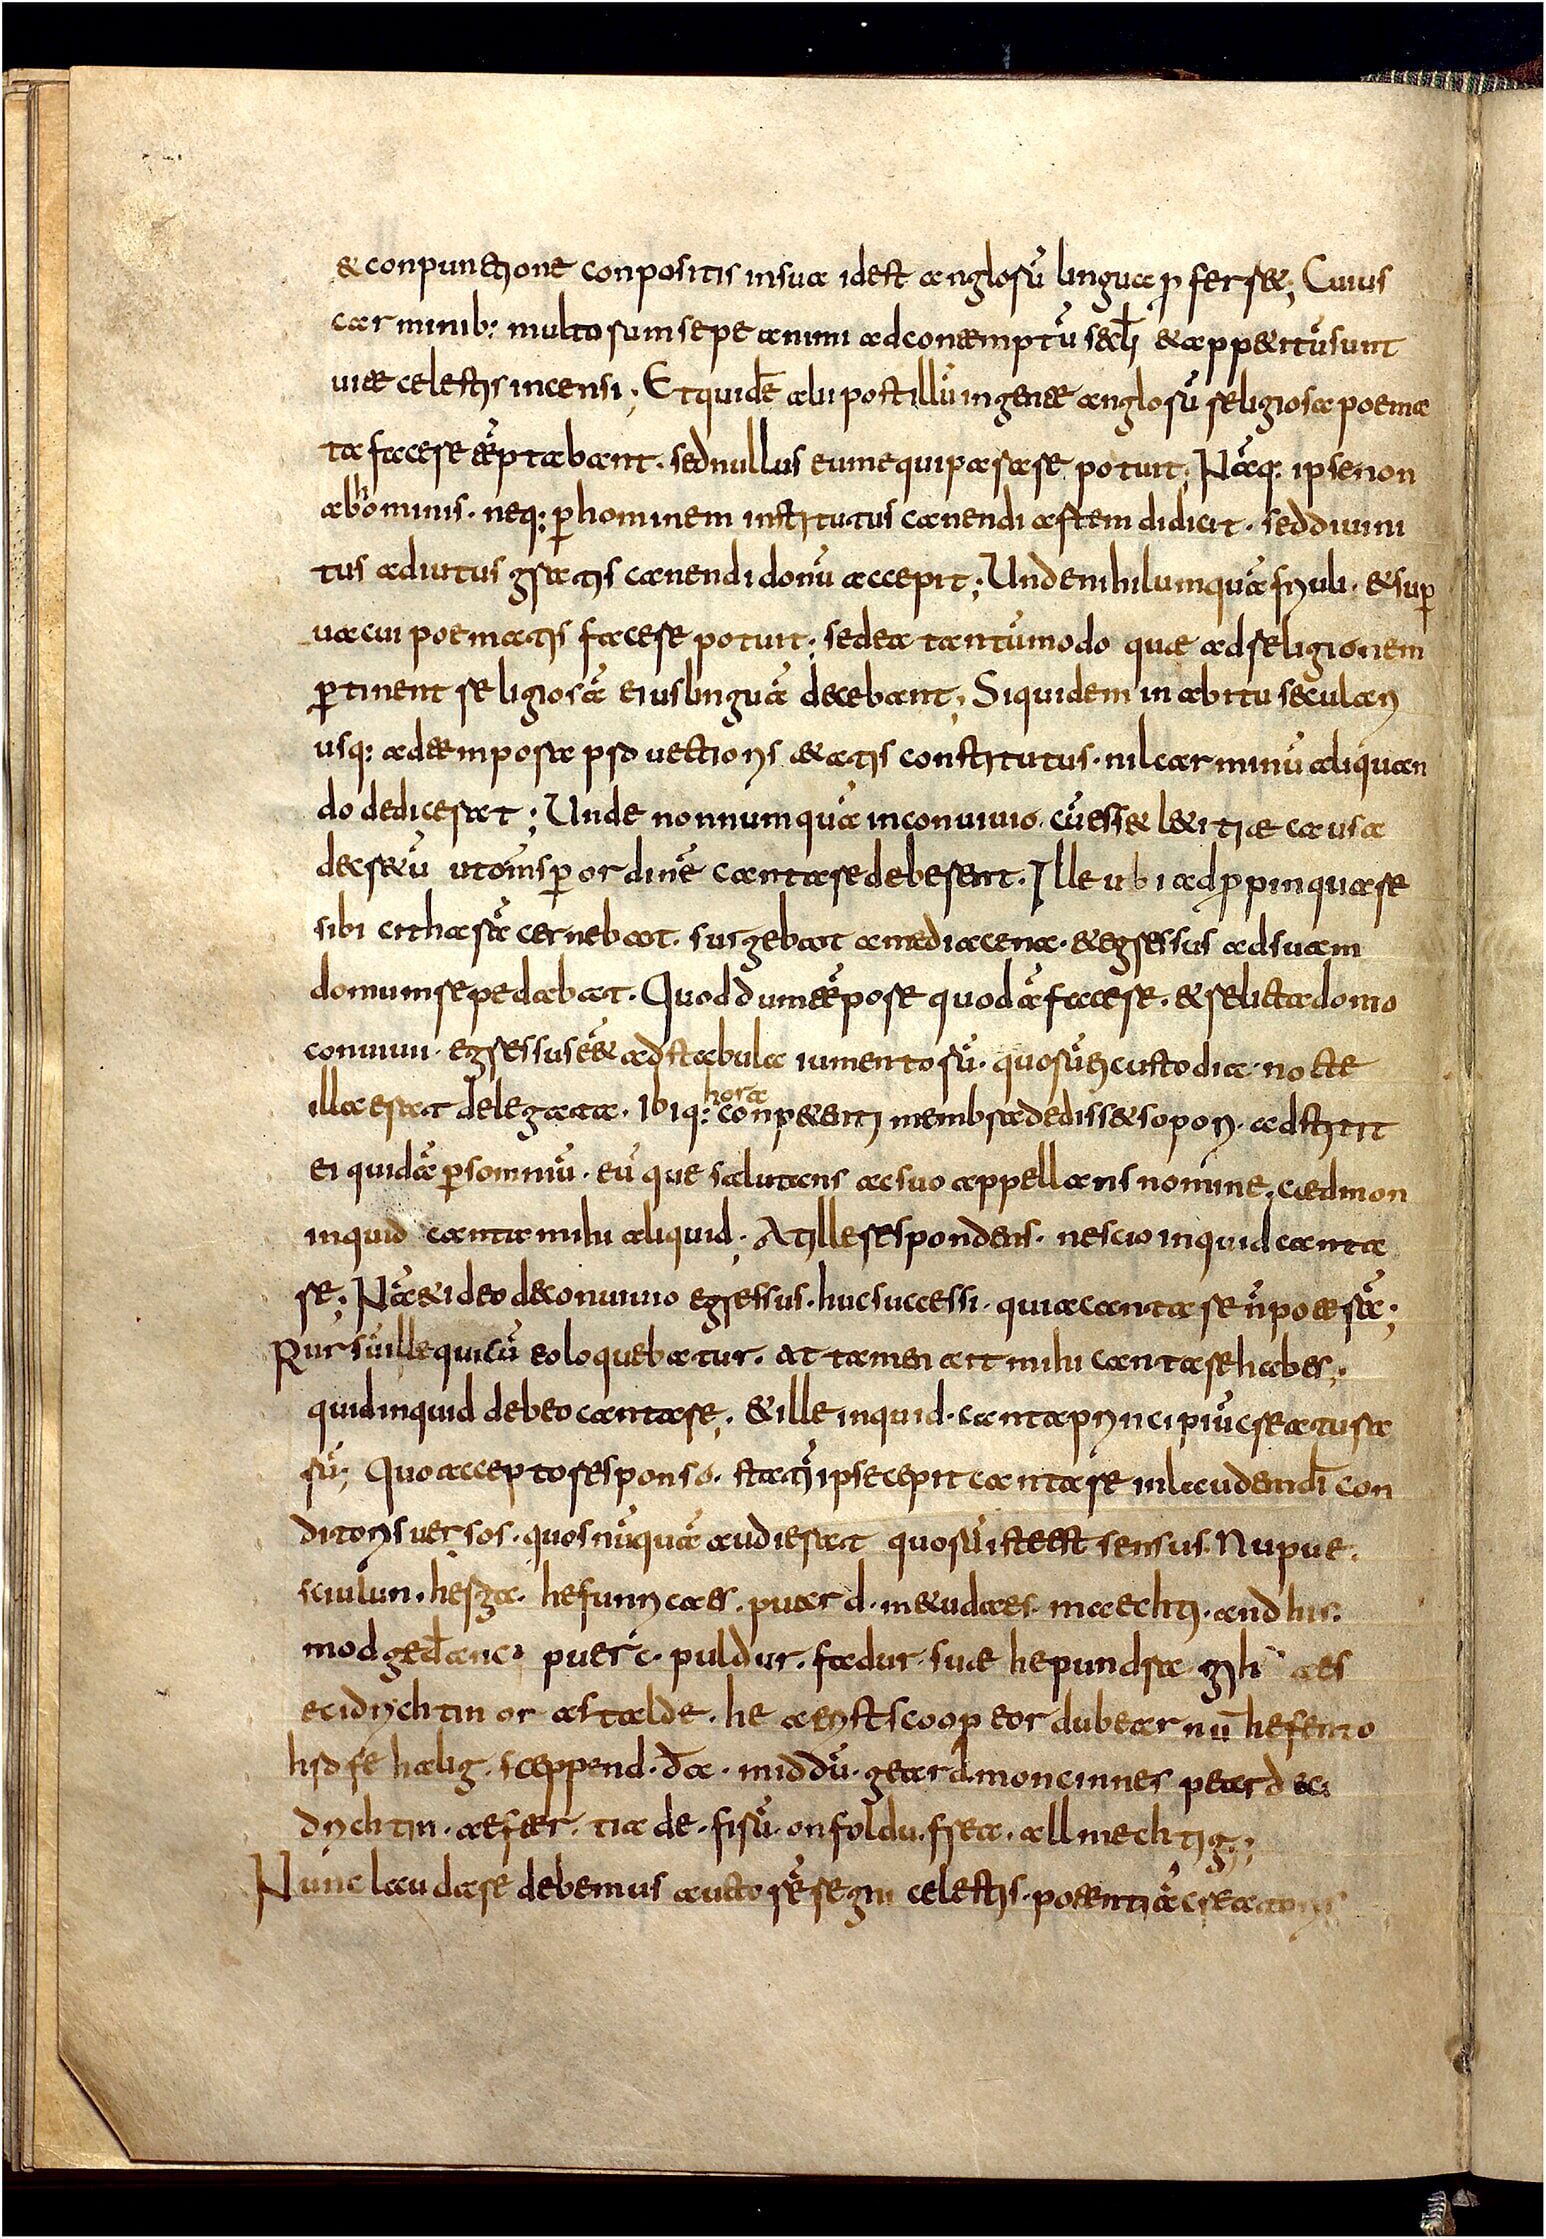 & conpunctione conpositis in sua id est anglorū lingua ꝓferret; Cuius
carminib: multorum sepe animi ad contemptū secłi & appetitū sunt
uitae celestis incensi; Et quidē alii post illū in gente anglorū religiosa poema
ta facere tēptabant. sed nullus eum equiparare potuit; Nāq: ipse non
ab hominis. neq: ꝑ hominem institutus canendi artem didicit. sed diuini
tus adiutus gratis canendi donū accepit; Unde nihil umquā friuoli. & suꝑ
uacui poematis facere potuit; sed ea tantūmodo quae ad religionem
ꝑtinent religiosā eius linguā decebant; Siquidem in abitu seculari
usq: ad tempora prouectioris aetatis constitutus. nil carminū aliquan
do dedicerat; Unde nonnumquā in conuiuio. cū esset laetitiae causa
decretū ut om̄s ꝑ ordinē cantare deberent. Ille ubi adꝓpinquare
sibi citharā cernebat. surgebat a media cena. & egressus ad suam
domum sepedabat. Quod dum tēpore quodā faceret. & relicta domo
conuiuii. egressus eēt ad stabula iumentorū. quorū ei custodia nocte
illa erat delegata. Ibiq: hora conpetenti membra dedisset sopori. adstitit
ei quidā ꝑ somniū. eūque salutans ac suo appellans nomine. caedmon
inquid canta mihi aliquid; At ille respondens. nescio inquid canta
re; Nā & ideo de conuiuio egressus. huc successi. quia cantare n̄ poterā;
Rursū ille qui cū eo loquebatur. at tamen ait mihi cantare habes;
quid inquid debeo cantare; & ille inquid. canta principiū creatura
rū; Quo accepto responso. statī ipse cepit cantare in laudem dī con
ditoris uersos. quos nūquā audierat quorū iste est sensus. Nu ƿue.
sciulun. herga. hefunricaes. ƿuard. metudaes. maecti. and his.
modged̄anc. ƿuerc. ƿuldur. fadur. suae he ƿundra gih aes
eci drichtin or astalde. he aerist scoop eordu bearnū hefento
hrofe halig. sceppend. ða. middū. geard. moncinnes ƿeard eci
drichtin. aefter. tiade. firū. on foldu. frea. allmechtig;
Nunc laudare debemus auctorē regni celestis. potentiā creatoris